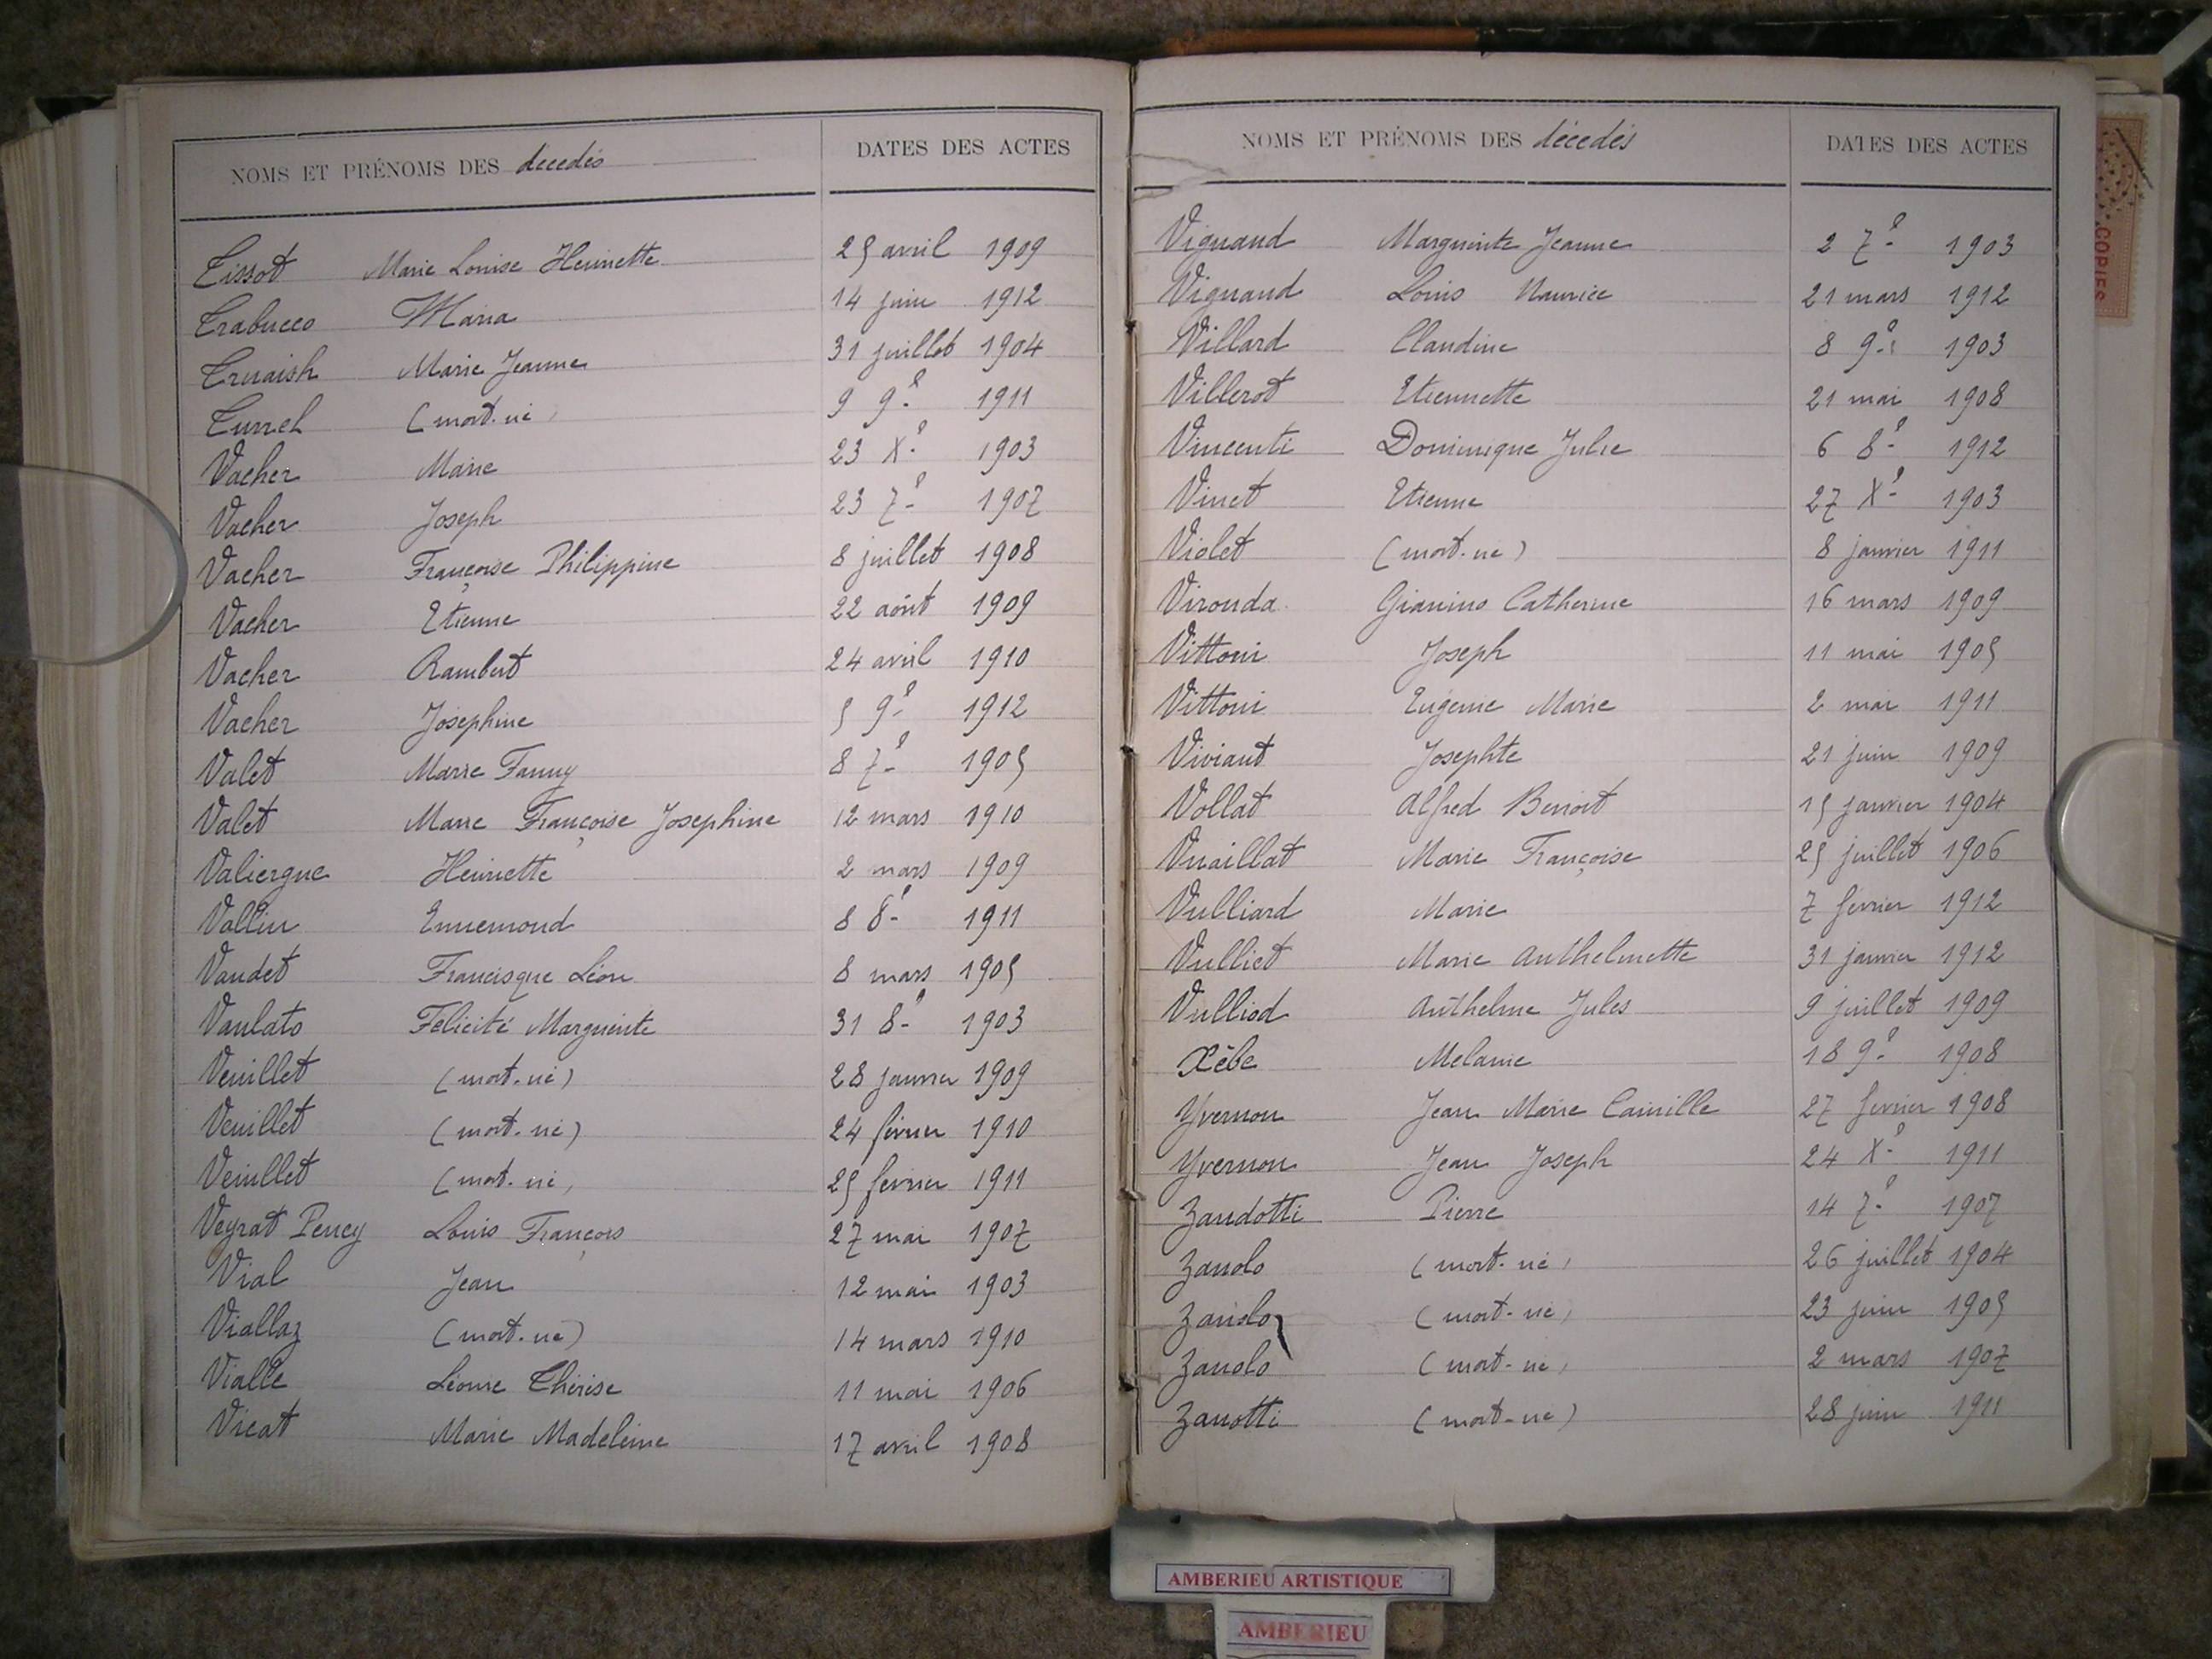 NOMS ET PRÉNOMS DES décédés DATES DES ACTES
Tissot Marie Louise Henriette 25 avril 1909
Trabucco Maria 14 juin 1912
Truaish Marie Jeanne 31 juillet 1904
Turrel (mort-né) 9 9e 1911
Vacher Marie 23 Xe 1903
Vacher Joseph 23 7e 1907
Vacher Françoise Philippine 8 juillet 1908
Vacher Etienne 22 août 1909
Vacher Rambert 24 avril 1910
Vacher Joséphine 5 9e 1912
Valet Marie Fanny 8 7e 1905
Valet Marie Françoise Josephine 12 mars 1910
Valiergue Henriette 2 mars 1909
Vallin Ennemond 8 8e 1911
Vaudet Francisque Léon 8 mars 1905
Vaulato Félicité Marguerite 31 8e 1903
Veuillet (mort-né) 28 janvier 1909
Veuillet (mort-né) 24 février 1910
Veuillet (mort-né) 25 février 1911
Veyrat Peney Louis François 27 mai 1907
Vial Jean 12 mai 1903
Viallaz (mort-né) 14 mars 1910
Vialle Léonie Thérèse 11 mai 1906
Vicat Marie Madeleine 17 avril 1908
NOMS ET PRÉNOMS DES décédés DATES DES ACTES
Vignand Marguerite Jeanne 2 7e 1903
Vignand Louis Maurice 21 mars 1912
Villard Claudine 8 9e 1903
Villerot Etiennette 21 mai 1908
Vincenti Dominique Julie 6 8e 1912
Vinet Etienne 27 Xe 1903
Violet (mort-né) 8 janvier 1911
Vironda Gianino Catherine 16 mars 1909
Vittoni Joseph 11 mai 1905
Vittoni Eugénie Marie 2 mai 1911
Viviant Josephte 21 juin 1909
Vollat Alfred Benoit 15 janvier 1904
Vuaillat Marie Françoise 25 juillet 1906
Vulliard Marie 7 février 1912
Vulliet Marie Anthelmette 31 janvier 1912
Vulliod Anthelme Jules 9 juillet 1909
Xèbe Melanie 18 9e 1908
Yvernon Jean Marie Camille 27 février 1908
Yvernon Jean Joseph 24 Xe 1911
Zandotti Pierre 14 7e 1907
Zanolo (mort-né) 26 juillet 1904
Zanolo (mort-né) 23 juin 1905
Zanolo (mort-né) 2 mars 1907
Zanotti (mort-né) 28 juin 1911
COPIES
AMBERIEU ARTISTIQUE
AMBERIEU